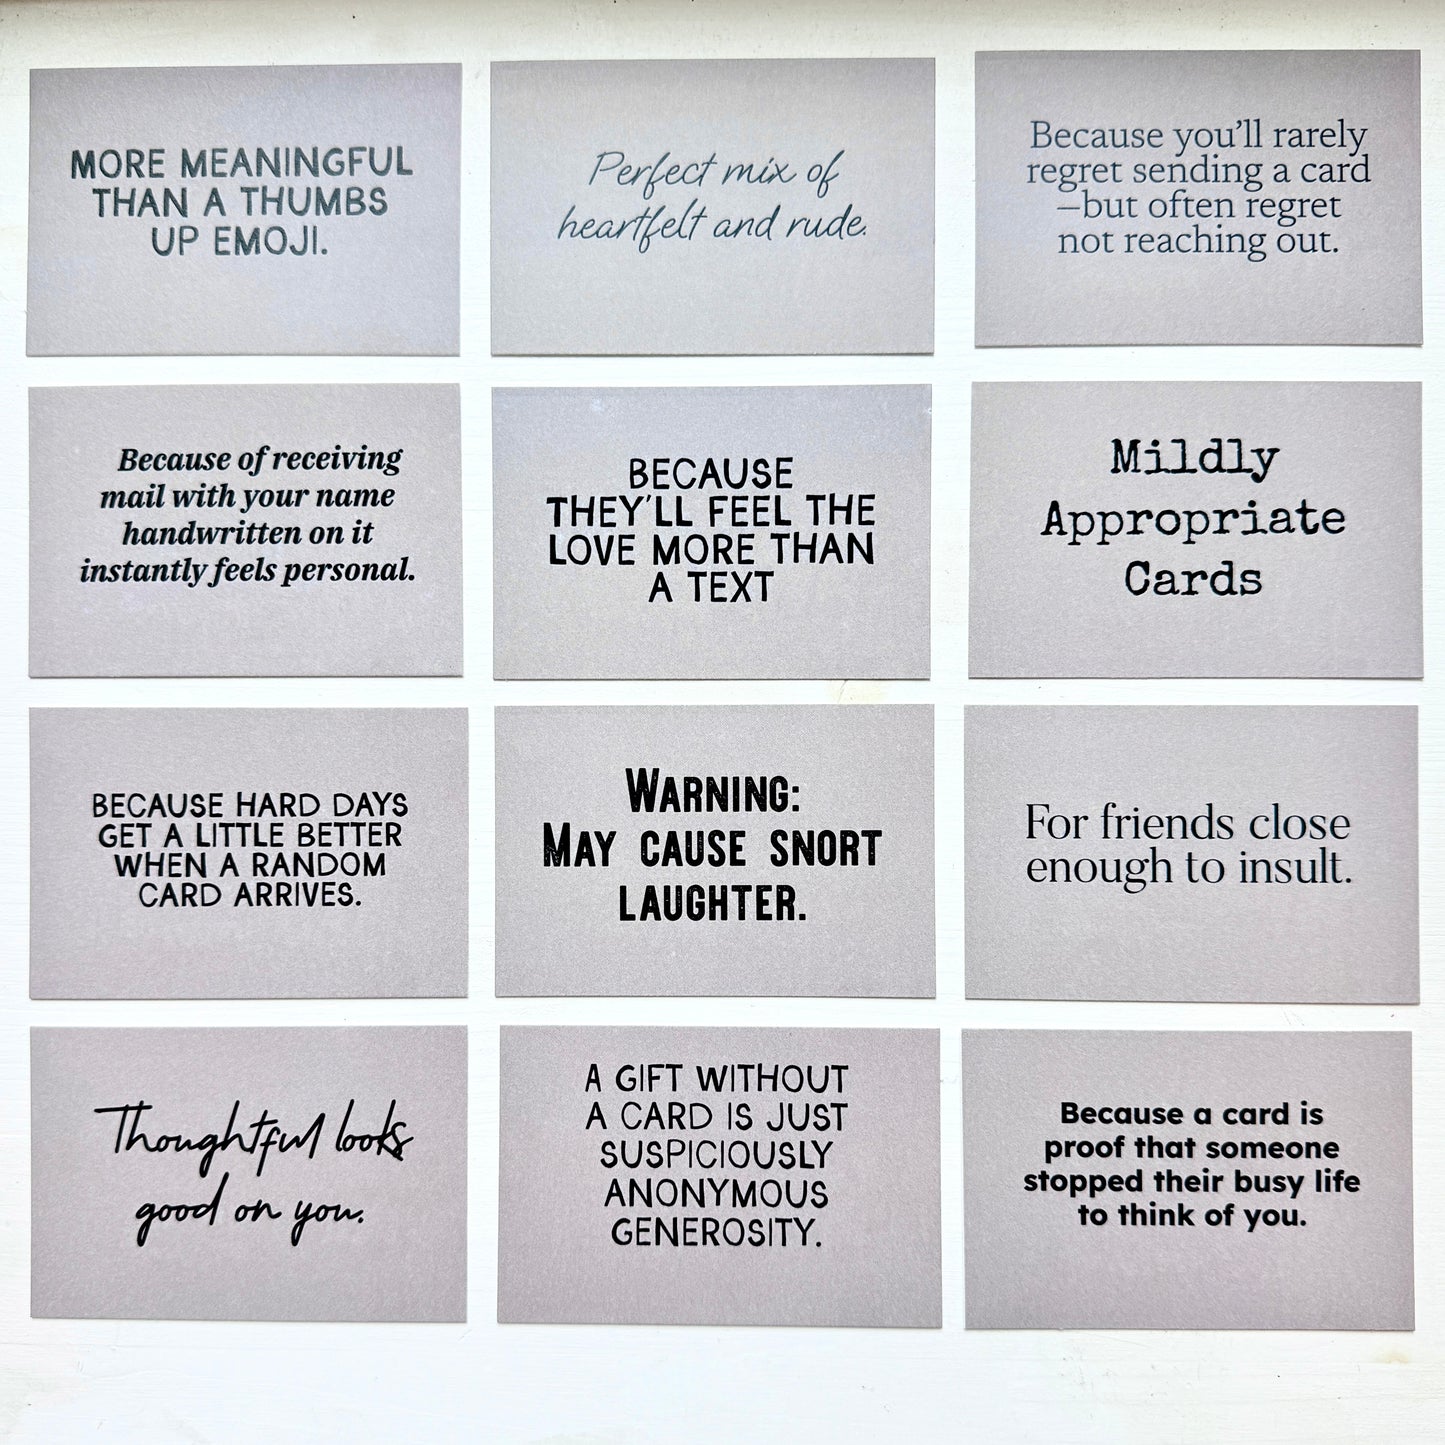 MORE MEANINGFUL
THAN A THUMBS
UP EMOJI.
Perfect mix of
heartfelt and rude.
Because you'll rarely
regret sending a card
—but often regret
not reaching out.
Because of receiving
mail with your name
handwritten on it
instantly feels personal.
BECAUSE
THEY'LL FEEL THE
LOVE MORE THAN
A TEXT
Mildly
Appropriate
Cards
BECAUSE HARD DAYS
GET A LITTLE BETTER
WHEN A RANDOM
CARD ARRIVES.
WARNING:
MAY CAUSE SNORT
LAUGHTER.
For friends close
enough to insult.
Thoughtful looks
good on you.
A GIFT WITHOUT
A CARD IS JUST
SUSPICIOUSLY
ANONYMOUS
GENEROSITY.
Because a card is
proof that someone
stopped their busy life
to think of you.